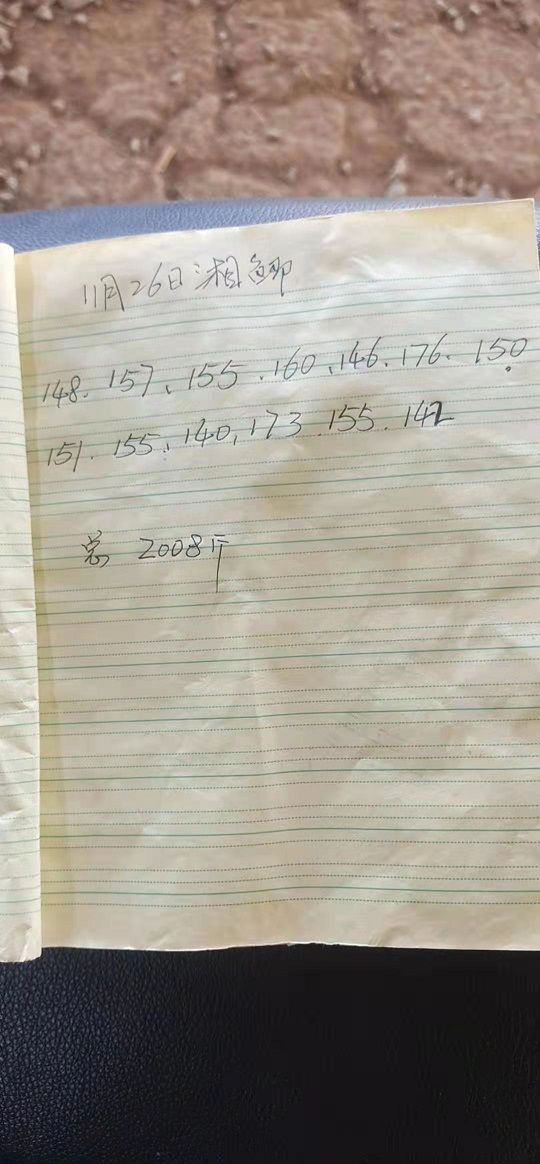 11月26日:湘鲫
148、157、155、160、146、176、150
151、155、140、173、155、142
总 2008斤